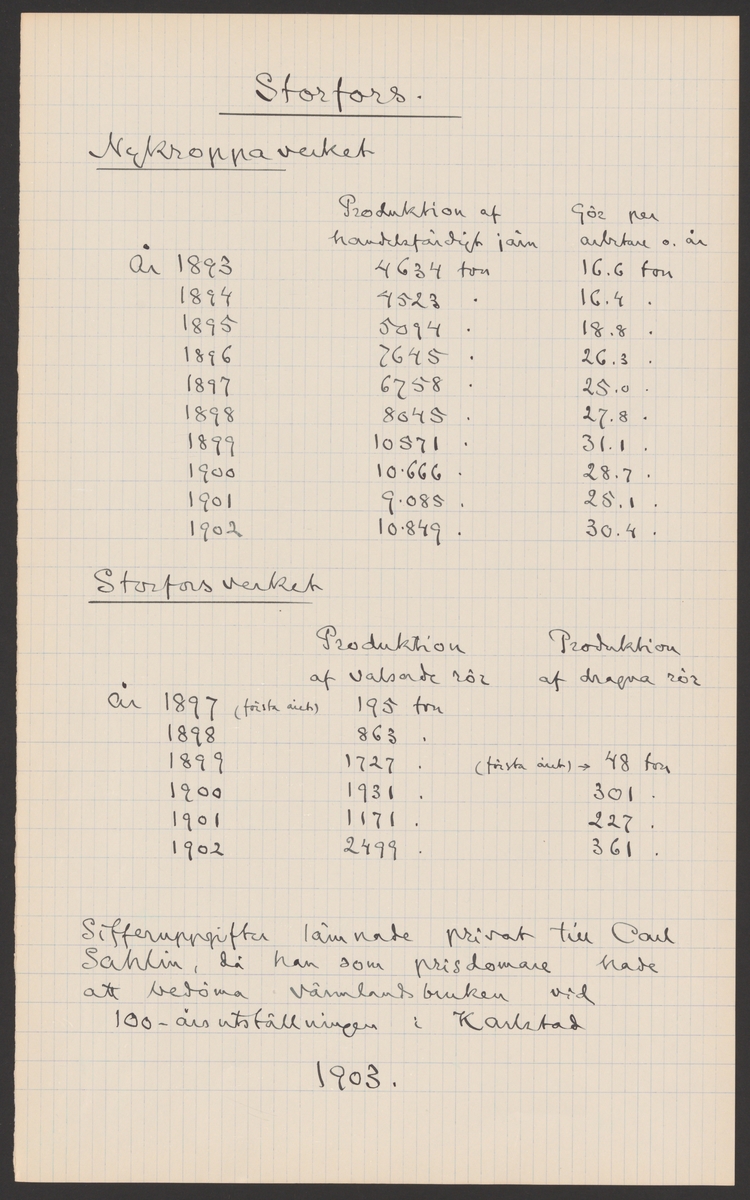 Storfors.
Nykroppaverket
Produktion af Gör per
handelsfärdigt järn arbetare o. år
År 1893 4634 ton 16.6 ton
1894 4523 . 16.4 .
1895 5094 . 18.8 .
1896 7645 . 26.3 .
1897 6758 . 25.0 .
1898 8045 . 27.8 .
1899 10571 . 31.1 .
1900 10.666 . 28.7 .
1901 9.085 . 25.1 .
1902 10.849 . 30.4 .
Storforsverket
Produktion Produktion
af valsade rör af dragna rör
År 1897 (första året) 195 ton
1898 863 .
1899 1727 . (första året) → 48 ton
1900 1931 . 301 .
1901 1171 . 227 .
1902 2499 . 361 .
Sifferuppgifter lämnade privat till Carl
Sahlin, då han som prisdomare hade
att bedöma värmlandsbruken vid
100-årsutställningen i Karlstad
1903.